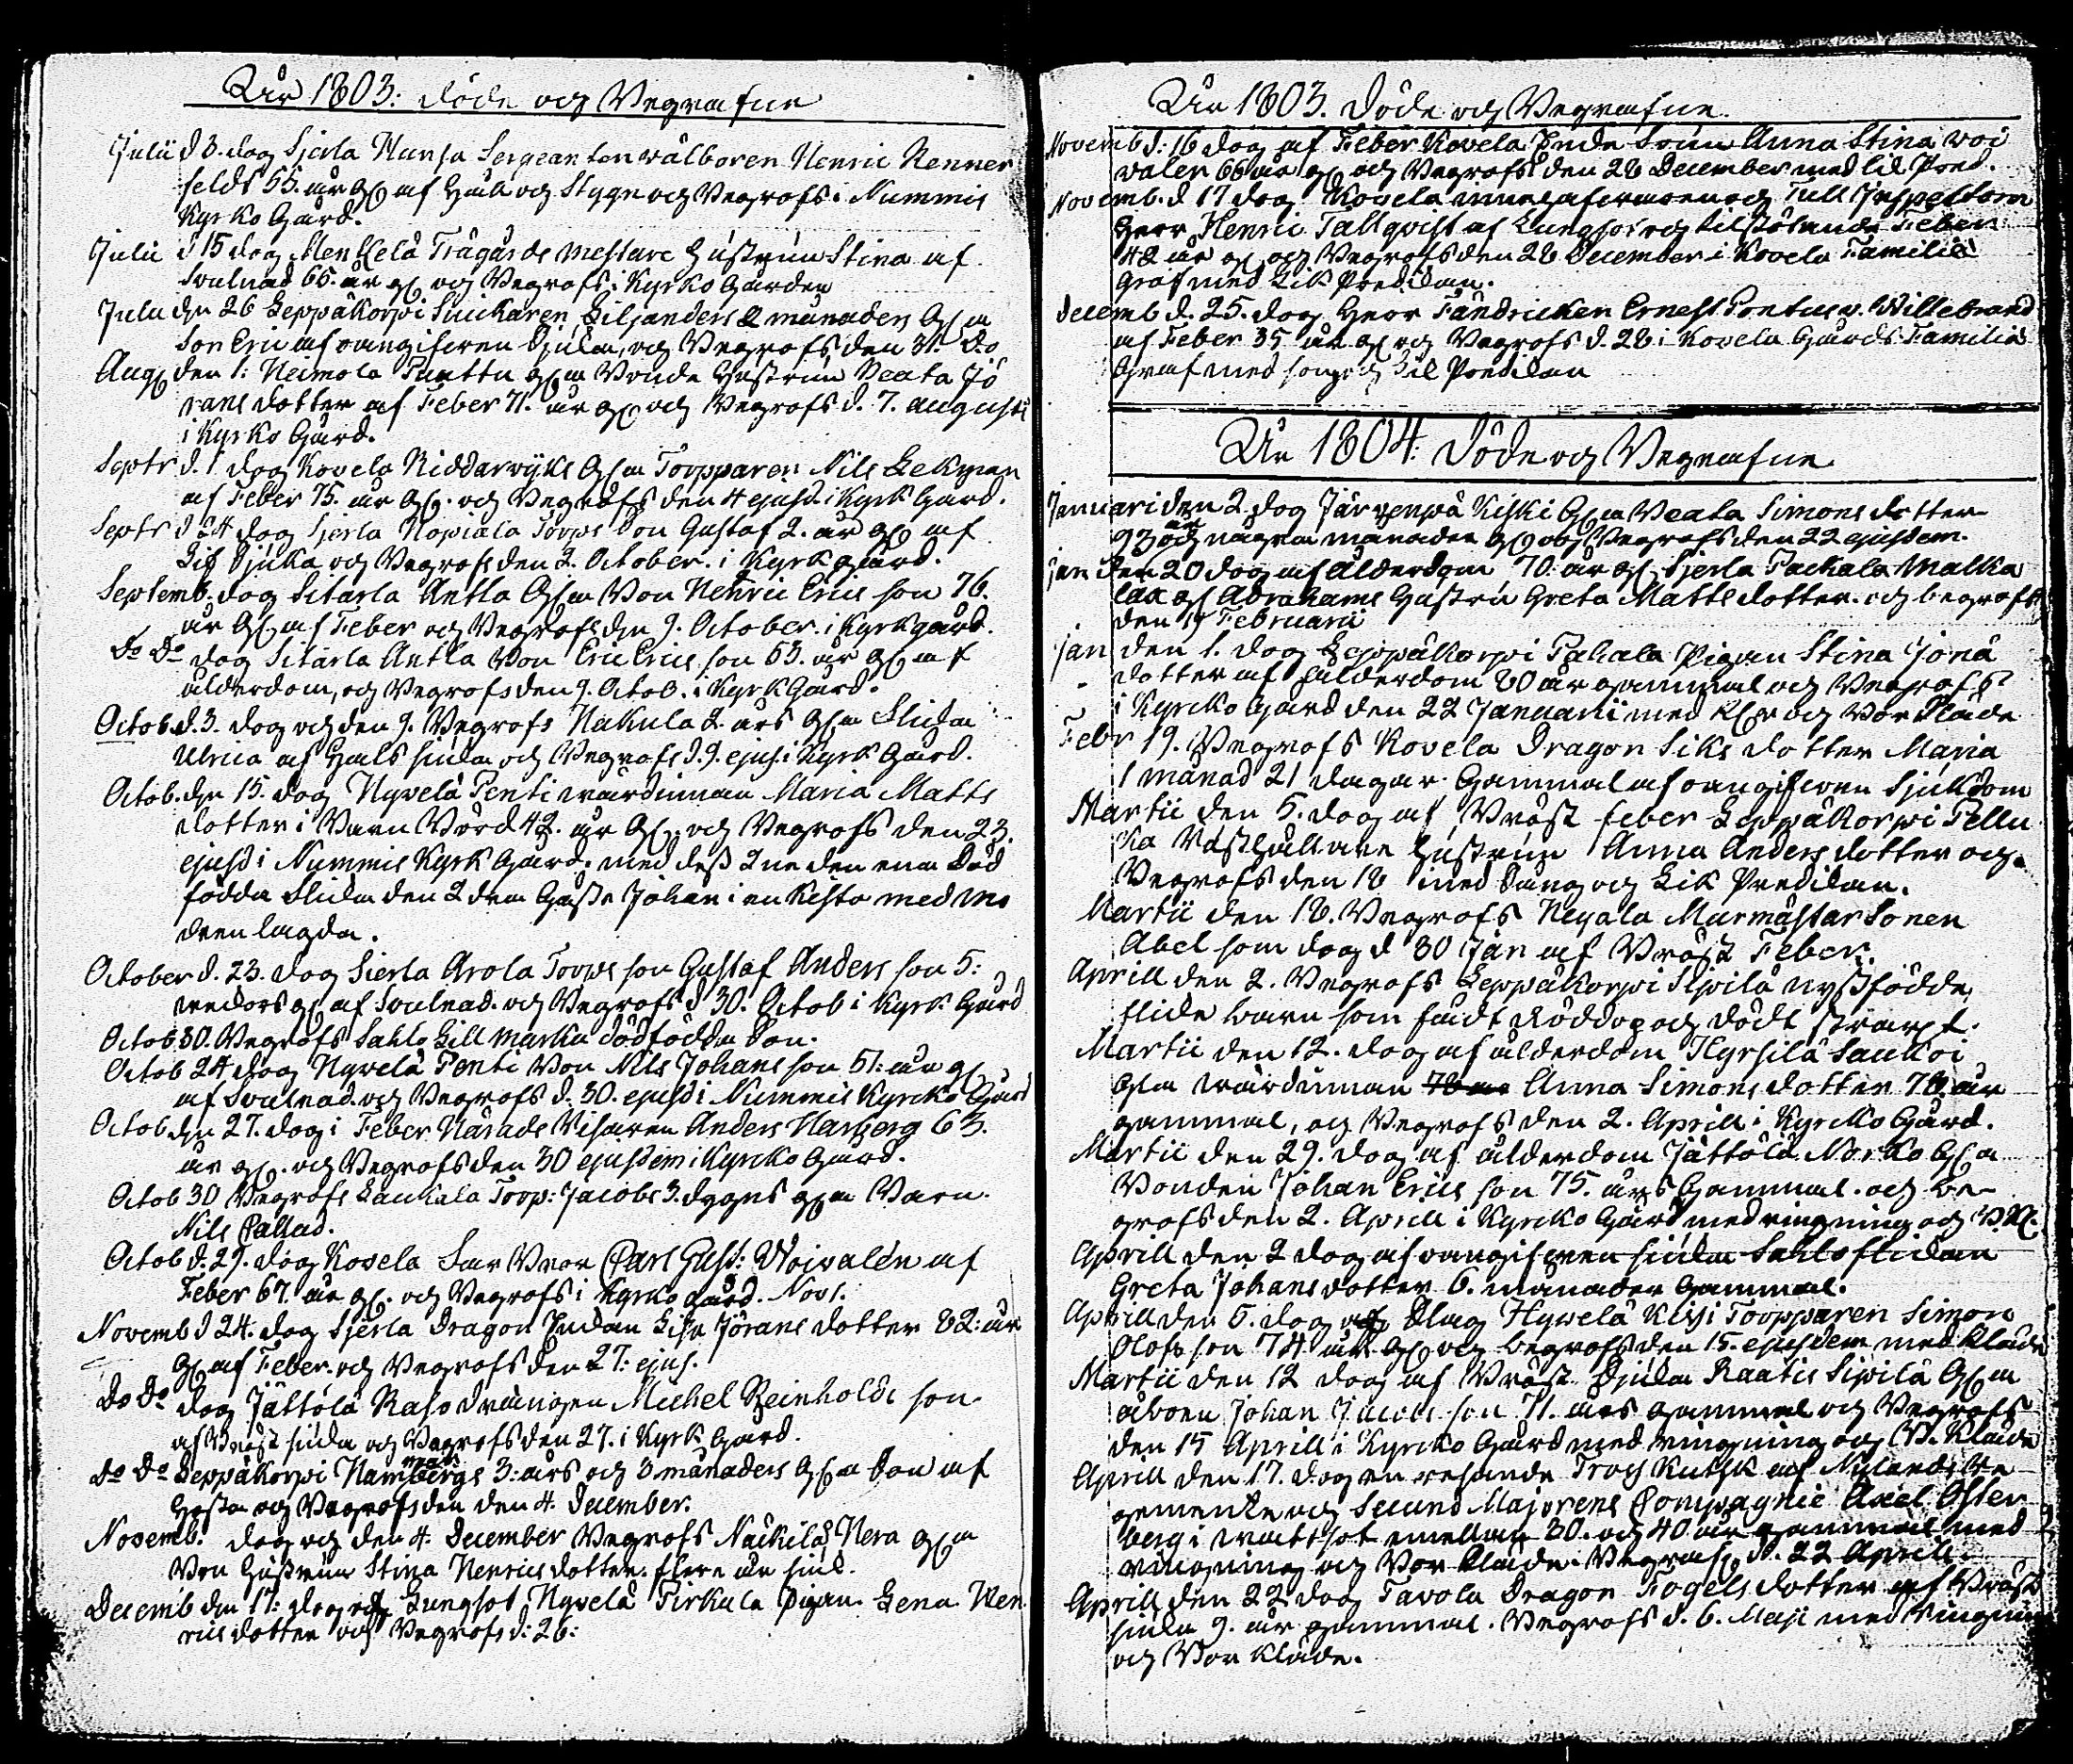 År 1803: döde och Begrafne
Julii d 3. dog Sjerla Hunsa Sergeanten wälboren Henric Renner
feldt 55. år gl af Håll och Stygn och Begrofs i Nummis
Kyrko Gård.
Julii d 15 dog Menkelä Trägårds mestare Hustrun Stina af
Svulnad 65. år gl och Begrofs i Kyrko Gården
Julii den 26 Leppäkorpi Snickaren Liljanders 2 månaders Glm
Son Eric af oangifven Sjukd. och Begrofs den 31. do
Aug den 1: Heimola Tuattu Glm Bonde Hustrun Beata Jö
rans dotter af Feber 71. år gl och Begrofs d. 7. augusti
i Kyrko Gård.
Septr d. 1 dog Kovela Riddarwijks Glm Torpparen Nils Lekman
af Feber 75. år gl. och Begrofs den 4 ejusd. i Kyrk Gård.
Septr d 24 dog Sjerla Nopiala Torps Son Gustaf 2. år gl af
Sjuka och Begrofs den 2. October. i Kyrk gård.
Septemb. dog Sitarla Antla Glm Bon Henric Erics son 76.
år gl af Feber och Begrofs den 9. October. i Kyrkgård.
Do Do dog Sitarla Antla Bon Eric Erics son 53. år gl af
ålderdom, och Begrofs den 9. Octob. i Kyrk Gård.
Octob. d. 3. dog och den 9. Begrofs Hakula 2. års Glm Flicka
Ulrica af Hals siuka och Begrofs d. 9. ejus. i Kyrk Gård.
Octob. den 15. dog Hyvelä Penti wärdinnan Maria Matts
dotter i Barn Börd 42. år Gl. och Begrofs den 23.
ejusd i Nummis Kyrk Gård. med dess 2ne den ena död
födda Flicka den 2dra Gosse Johan i en Kista med mo
dren lagda.
October d. 23. dog Sierla Arola Torps son Gustaf Anders son 5:
veckors gl af Svulnad. och Begrofs d 30. Octob i Kyrk Gård
Octob 30. Begrofs Sahlo Lill Marku dödfödda Son.
Octob 24 dog Hyvelä Penti Bon Nils Johans son 51: år gl
af Svulnad. och Begrofs d. 30. ejusd i Nummis Kyrcko Gård
Octob den 27. dog i Feber Härads Visaren Anders Harberg 63.
år gl. och Begrofs den 30 ejusdem i Kyrcko Gård.
Octob 30 Begrofs Laukala Torp: Jacobs 3. dygns glm Barn.
Nils Kallad.
Octob d. 29. dog Kovela Far Bror Carl Gust: Woivalén af
Feber 67. år gl. och Begrofs i Kyrko gård. Nov 1.
Novemb d 24. dog Sjerla Dragon Enkan Lisa Jörans dotter 82: år
gl af Feber. och Begrofs den 27: ejus.
Do Do dog Jättölä Raso drängen Michel Reinholds son
af Bröst siuka och Begrofs den 27. i Kyrk Gård.
Do Do Leppäkorpi Hambergs mag 3: års och 3 månaders Glm Son af
Hosta och Begrofs den den 4. December.
Novemb. dog och den 4. December Begrofs Näckilä Hera glm
Bon Hustrun Stina Henrics dotter. flere år siuk.
Decemb den 11: dog af Lungsot Hyvelä Pirkula Pigan Lena Hen
rics dotter och Begrofs d: 26:
År 1803. Döde och Begrafne
Novemb d: 16 dog af Feber Kovela Enke Frun Anna Stina Woi
valen 66 år gl och Begrofs den 28 December med lik Pred.
Novemb. d 17 dog Kovela innehafvaren och Tull Inspectorn
Herr Henric Tallqvist af Lungsot och tilstötande Feber
42 år gl och Begrofs den 28 December i Kovela Familie
Graf med Lik Predikan.
Decemb d. 25. dog Herr Fändricken Ernest Pontus v. Willebrand
af Feber 35 år gl och Begrofs d. 28 i Kovela Gårds Familie
Graf med sång och Lik Predikan
År 1804. Döde och Begrafne
Januari den 2. dog Järvenpä Kiski Glm Beata Simons dotter
93 år och några månader gl och Begrofs den 22 ejusdem.
jan den 20 dog af ålderdom 70. år gl Sjerla Packala Malka
lax gl Abrahams Hustru Greta Matts dotter. och begrofs
den 19 Februarii
jan den 1. dog Leppäkorpi Pahala Pigan Stina Jona
dotter af ålderdom 80 år gammal och Begrofs
i Kyrcko Gård den 22 Januarii med Kl och Bår Kläde
Febr 19. Begrofs Kovela Dragon Siks dotter Maria
1 månad 21 dagar. Gammal af oangifven Sjukdom
Martii den 5. dog af Bröst feber Leppäkorpi Pellu
ka Rusthållare Hustrun Anna Anders dotter och
Begrofs den 18 med Sång och Lik Predikan.
Martii den 18. Begrofs Negala Murmästar Sonen
Abel som dog d 30 Jan af Bröst Feber.
Aprill den 2. Begrofs Leppäkorpi Sipilä nyssfödde
flicke barn som fådt Nöddop och dödt strax f.
Martii den 12. dog af ålderdom Hyrsilä Saukoi
glm wärdinnan 78 år Anna Simons dotter 78 år
gammal, och Begrofs den 2. Aprill i Kyrcko Gård.
Martii den 29. dog af ålderdom Jättölä Norko Glm
Bonden Johan Erics son 75. års Gammal. och be-
grofs den 2. Aprill i Kyrcko Gård med ringning och B. Kl.
Aprill den 2 dog af oangifven siuka Sahlo flickan
Greta Johans dotter 6. månader Gammal.
Aprill den 5. dog af Slag Hyvelä Kisi Torpparen Simon
Olofs son 74 år gl och begrofs den 15. ejusdem med Kläde
Martii den 12 dog af Bröst Sjuka Raatis Sipilä Glm
åboen Johan Jacobs son 71. års gammal och Begrofs
den 15 Aprill i Kyrcko Gård med ringning och B. Kläde
Aprill den 17. dog en resande Tross Kusk af Nylands Re
gemente och Secund Majorens Compagnie Axel Öster
berg i wattsot emellan 30. och 40 år gammal med
ringning och Bår kläde. Begrafs d. 22 Aprill.
Aprill den 22 dog Tavola Dragon Fogels dotter af Bröst
siuka 9. år gammal. Begrofs d. 6. Maji med Ringning
och Bår kläde.